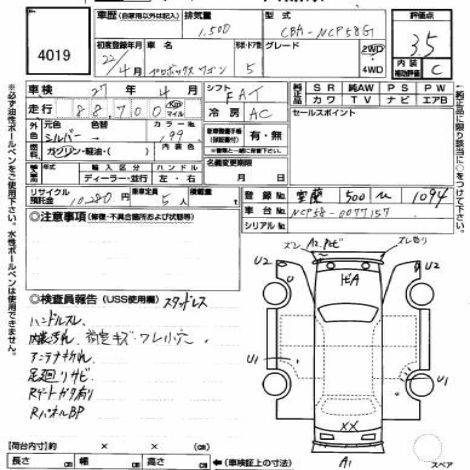 4019
車歴 (自家用以外は記入)
排気量
1,500
型式
CBA-NCP58G
評価点
3.5
初度登録年月
22/4月
車名
プロボックスワゴン
ドア・形
5
グレード
2WD
4WD
内装
補助評価
C
車検
27年4月
シフト
FAT
純正品
SR
純AW
PS
PW
カワ
TV
ナビ
エアB
走行
88,700
Km
マイル
冷房
AC
セールスポイント
外元色
シルバー
色替
カラーNo.
199
内装色
有・無
燃料
ガソリン・軽油・( )
輸入車
ディーラー・並行
ハンドル
左・右
名義変更期限
月 日
リサイクル預託金
10,280円
乗車定員
5人
積載量
登録No.
室蘭 500 1094
車台No.
NCP58-0077157
シリアルNo.
◎注意事項 (修復・不具合箇所および状態等)
◎検査員報告 (USS使用欄) スタッドレス
ハンドルスレ
内装汚れ
アンテナ
足廻りサビ
Rゲートガタ有り
RパネルBP
U2
U2
U1
U1
XX
A1
スペア
【荷台内寸】 × ×
長さ cm
幅 cm
高さ cm
←(車検証上の寸法)
※必ず油性ボールペンをご使用下さい。水性ボールペンは使用できません。
純正品に限り該当に○をつけて下さい。